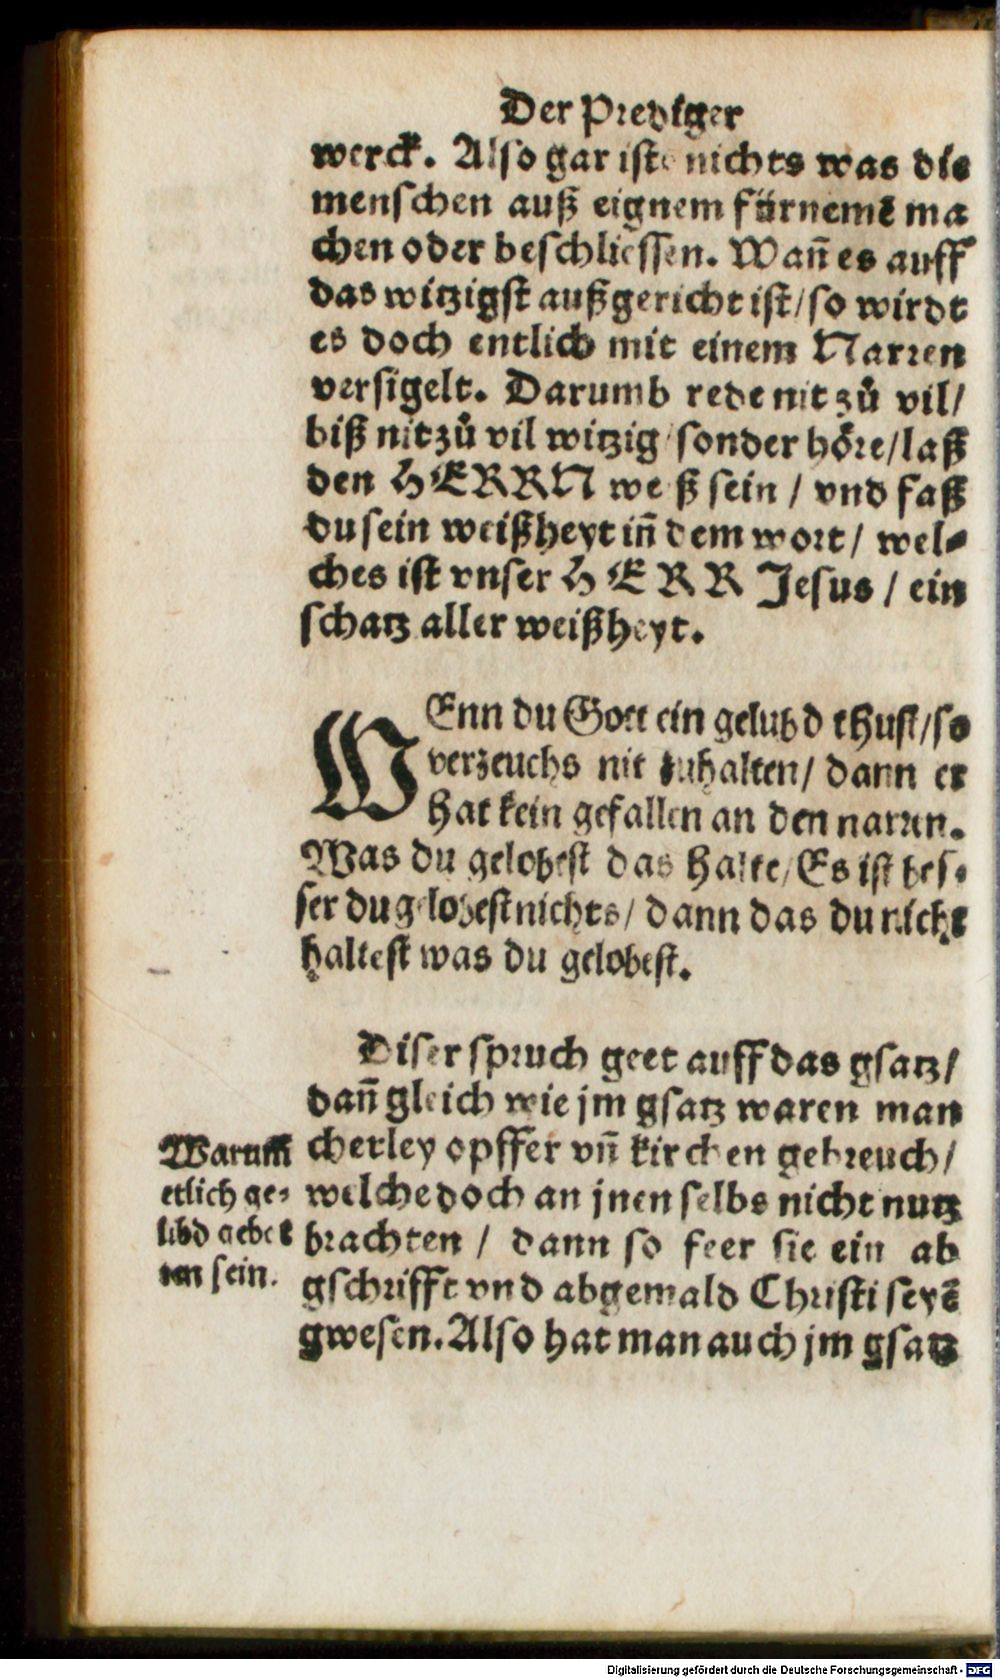 Der Prediger
werck. Also gar ists nichts was die
menschen auß eignem fürnemẽ ma
chen oder beschliessen. Wañ es auff
das witzigst außgericht ist/ so wirdt
es doch entlich mit einem Narren
versigelt. Darumb rede nit zů vil/
biß nit zů vil witzig/ sonder höre/ laß
den HERRN weiß sein / vnd faß
du sein weißheyt iñ dem wort/ wel⸗
ches ist vnser HERR Jesus / ein
schatz aller weißheyt.
WEnn du Gott ein gelubd thust/ so
verzeuchs nit zuhalten/ dann er
hat kein gefallen an den narren.
Was du gelobest das halte/ Es ist bes⸗
ser du gelobest nichts/ dann das du nicht
haltest was du gelobest.
Diser spruch geet auff das gsatz/
dañ gleich wie jm gsatz waren man
cherley opffer vñ kirchen gebreuch/
welche doch an jnen selbs nicht nutz
brachten / dann so feer sie ein ab
gschrifft vnd abgemald Christi seyẽ
gwesen. Also hat man auch jm gsatz
Warum̃
etlich ge⸗
lübd gebot
ten sein.
Digitalisierung gefördert durch die Deutsche Forschungsgemeinschaft - DFG